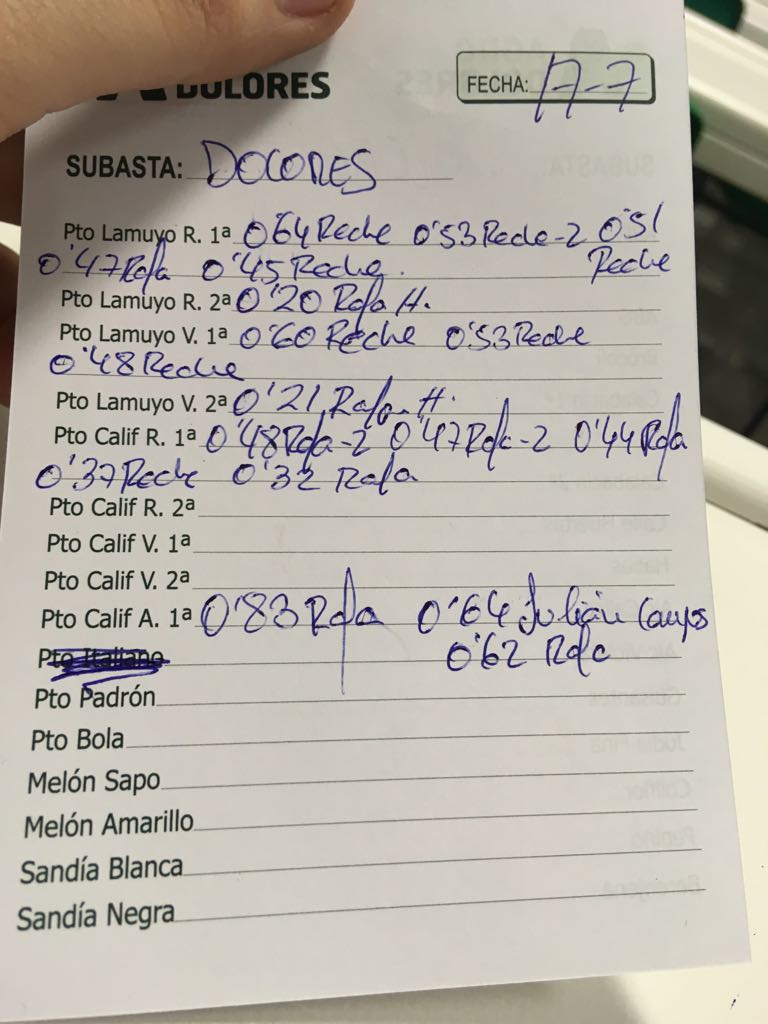 DOLORES
FECHA: 17-7
SUBASTA: DOLORES
Pto Lamuyo R. 1ª 0'64 Reche 0'53 Reche-2 0'51
0'47 Rafa 0'45 Reche. Reche
Pto Lamuyo R. 2ª 0'20 Rafa H.
Pto Lamuyo V. 1ª 0'60 Reche 0'53 Reche
0'48 Reche
Pto Lamuyo V. 2ª 0'21 Rafa. H.
Pto Calif R. 1ª 0'48 Rafa-2 0'47 Rafa-2 0'44 Rafa
0'37 Reche 0'32 Rafa
Pto Calif R. 2ª
Pto Calif V. 1ª
Pto Calif V. 2ª
Pto Calif A. 1ª 0'83 Rafa 0'64 Julián Campos
Pto Italiano 0'62 Rafa
Pto Padrón
Pto Bola
Melón Sapo
Melón Amarillo
Sandía Blanca
Sandía Negra